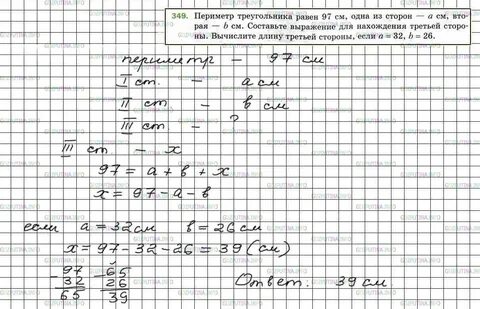 349. Периметр треугольника равен 97 см, одна из сторон — a см, вто-
рая — b см. Составьте выражение для нахождения третьей сторо-
ны. Вычислите длину третьей стороны, если a = 32, b = 26.
периметр — 97 см
I ст. — a см
II ст — в см
III ст — ?
III ст — x
97 = a + в + x
x = 97 - a - в
если a = 32 см в = 26 см
x = 97 - 32 - 26 = 39 (см)
- 97 - 65
32 26
65 39
Ответ. 39 см.